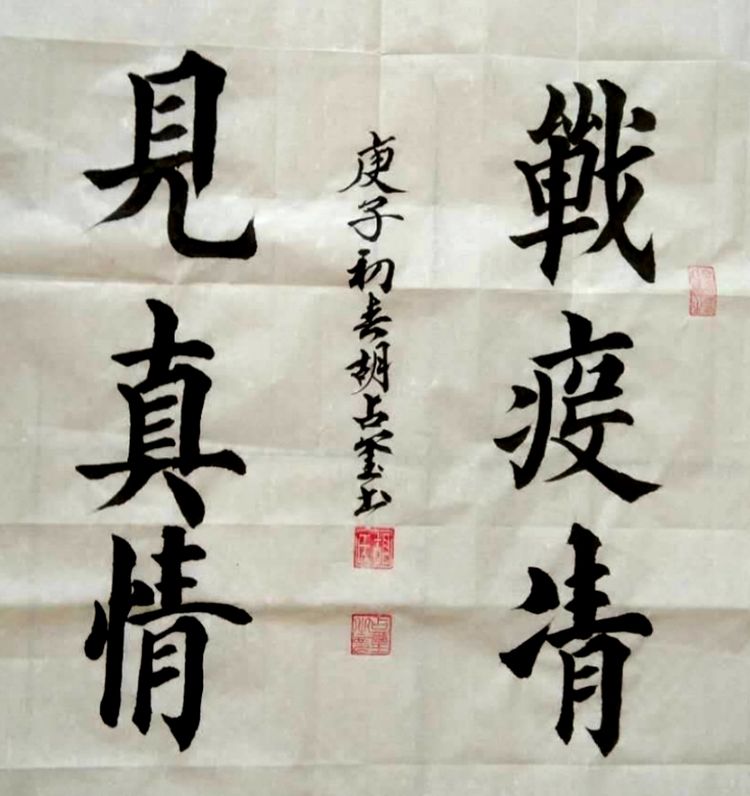 戰疫凊
見真情
庚子初春胡占书